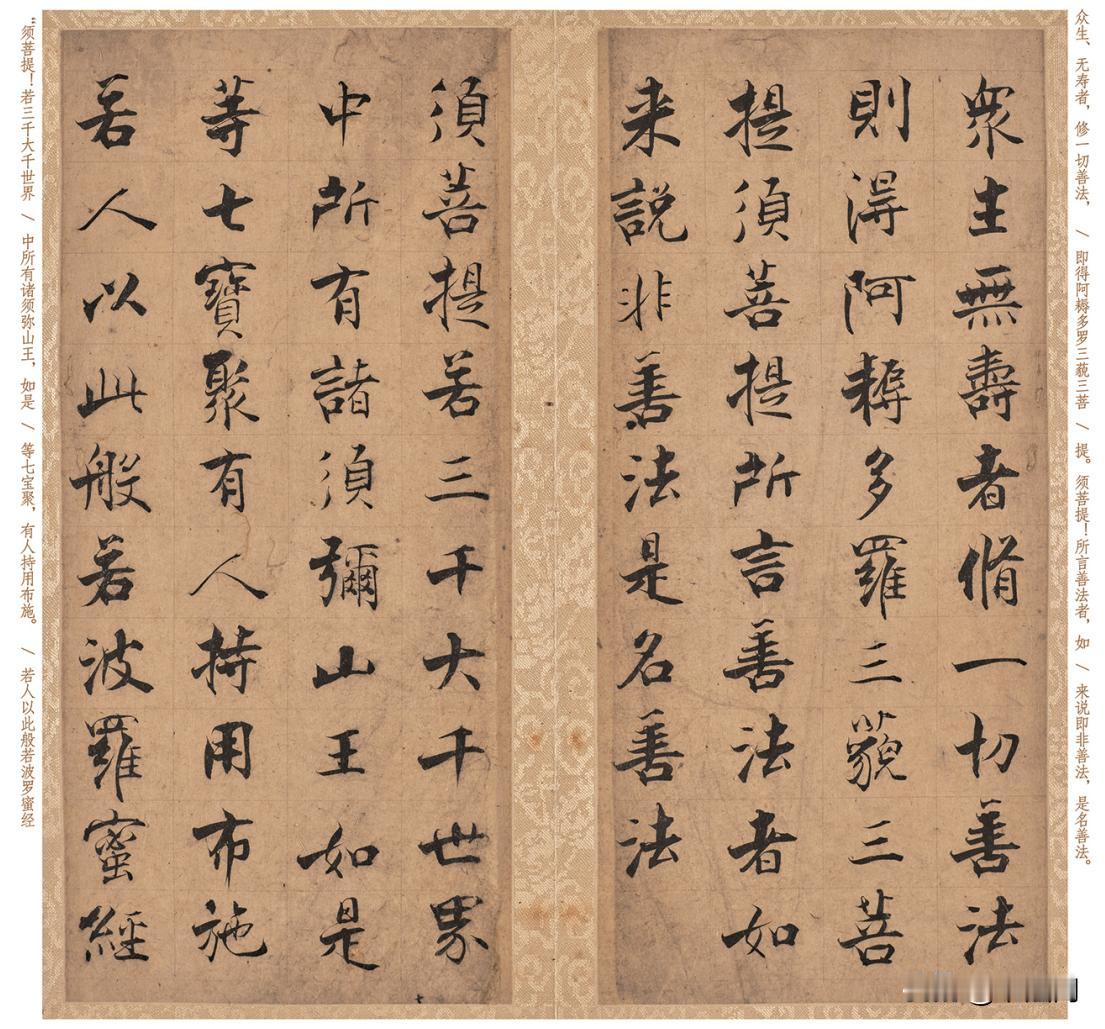 众生、无寿者，修一切善法， / 即得阿耨多罗三藐三菩 / 提。须菩提！所言善法者，如 / 来说即非善法，是名善法。
衆生無壽者脩一切善法
則得阿耨多羅三藐三菩
提須菩提所言善法者如
来說非善法是名善法
須菩提若三千大千世界
中所有諸須彌山王如是
等七寶聚有人持用布施
若人以此般若波羅蜜經
“须菩提！若三千大千世界 / 中所有诸须弥山王，如是 / 等七宝聚，有人持用布施。 / 若人以此般若波罗蜜经